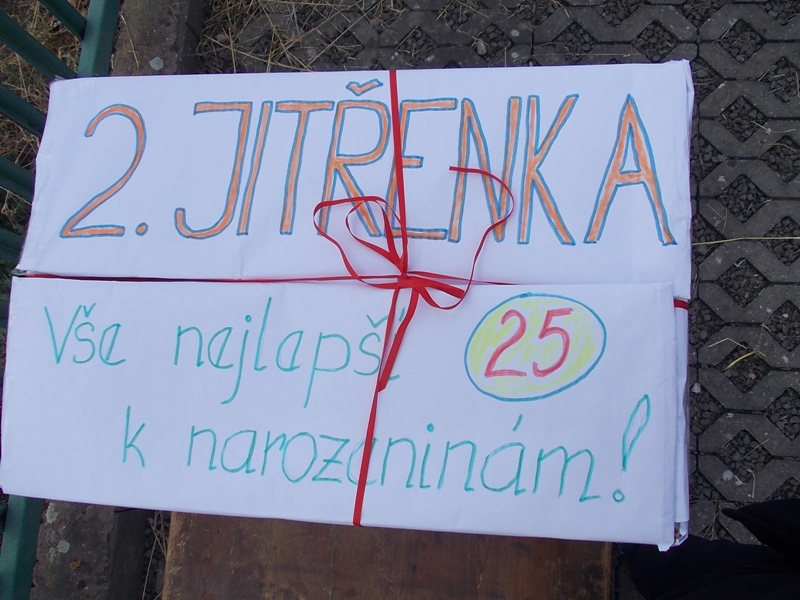 2. JITŘENKA
Vše nejlepší 25
k narozeninám!